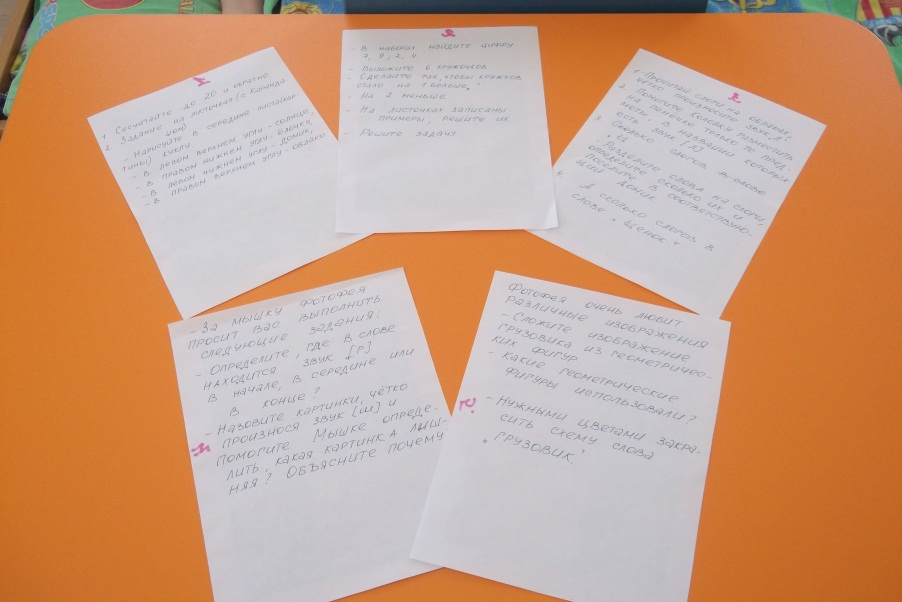 1. Сосчитайте до 20 и обратно
2. Задание на листочках (с карандашом)
- Нарисуйте в середине листа (картины) куклу
- В левом верхнем углу - солнце,
- В правом нижнем углу - яблоко,
- В левом нижнем углу - домик,
- В правом верхнем углу - облако
- В наборах найдите цифру
7, 9, 2, 4
- Выложите 6 кружочков
- Сделайте так, чтобы кружков
стало на 1 больше,"
- На 2 меньше
- На листочках записаны
примеры, решите их
- Решите задачу
1. Прочитай слоги на облаках,
четко произносите звук
2. Помогите Коловку разместить
на скамейке только те пред-
меты, в названии которых
есть звук
3. Сколько слогов в слове
Разделите слова на слоги,
определите сколько их и
поселите в соответствую-
щий домик
4. А сколько слогов в
слове "Щенок"
- За мышку фотофея
просит вас выполнить
следующие задания:
- Определите, где в слове
находится звук [р]
в начале, в середине или
в конце?
- Назовите картинки, чётко
произнося звук [ш] и
помогите Мышке опреде-
лить, какая картинка лиш-
няя? Объясните почему
Фотофея очень любит
различные изображения
- Сложите изображение
грузовика из геометричес-
ких фигур
- Какие геометрические
фигуры использовали?
- Нужными цветами закра-
сить схему слова
"грузовик"